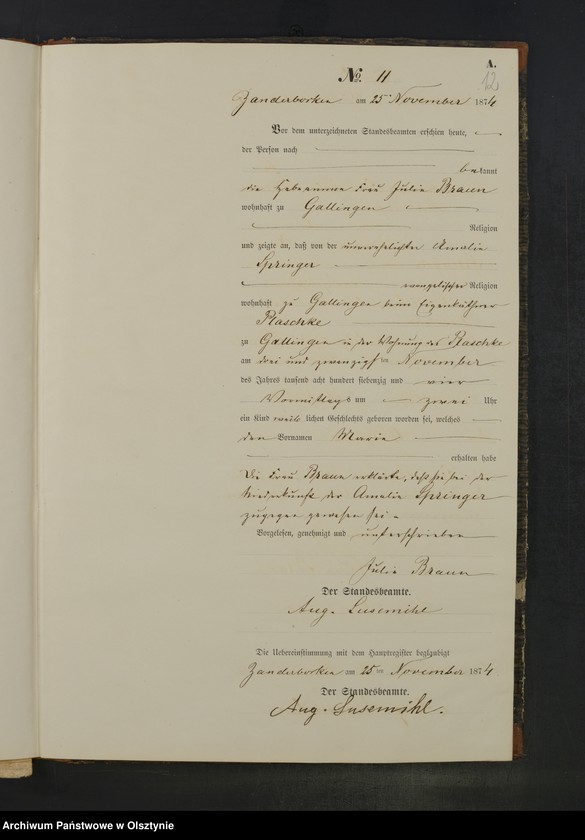 A.
12
No. 11
Zanderborken am 25 November 1874
Vor dem unterzeichneten Standesbeamten erschien heute,
der Person nach
bekannt
die Hebeamme Frau Julie Braun
wohnhaft zu Gallingen
Religion
und zeigte an, daß von der unverehelichten Amalie
Springer
evangelischer Religion
wohnhaft zu Gallingen beim Eigenkäthner
Plaschke
zu Gallingen in der Wohnung des Plaschke
am drei und zwanzigsten November
des Jahres tausend acht hundert siebenzig und vier
Vormittags um zwei Uhr
ein Kind weiblichen Geschlechts geboren worden sei, welches
den Vornamen Marie
erhalten habe
Die Frau Braun erklärte, daß sie bei der
Niederkunft der Amalie Springer
zugegen gewesen sei -
Vorgelesen, genehmigt und unterschrieben
Julie Braun
Der Standesbeamte.
Aug. Lusemihl
Die Uebereinstimmung mit dem Hauptregister beglaubigt
Zanderborken am 25 November 1874
Der Standesbeamte.
Aug. Lusemihl.
Archiwum Państwowe w Olsztynie